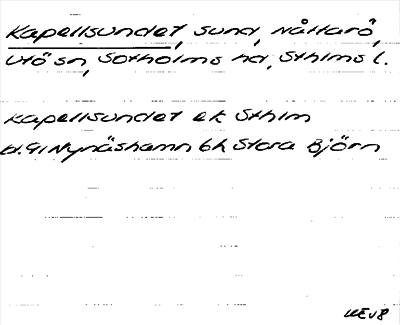 Kapellsundet, sund, Nåttarö,
Utö sn, Sotholms hd, Sthlms l.
Kapellsundet ek Sthlm
bl. 9I Nynäshamn 6h Stora Björn